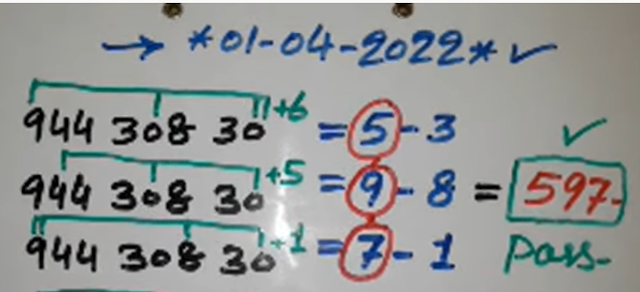 → *01-04-2022* ✓
944 308 30 +6 = 5 - 3 ✓
944 308 30 +5 = 9 - 8 = 597-
944 308 30 +1 = 7 - 1 Pass-